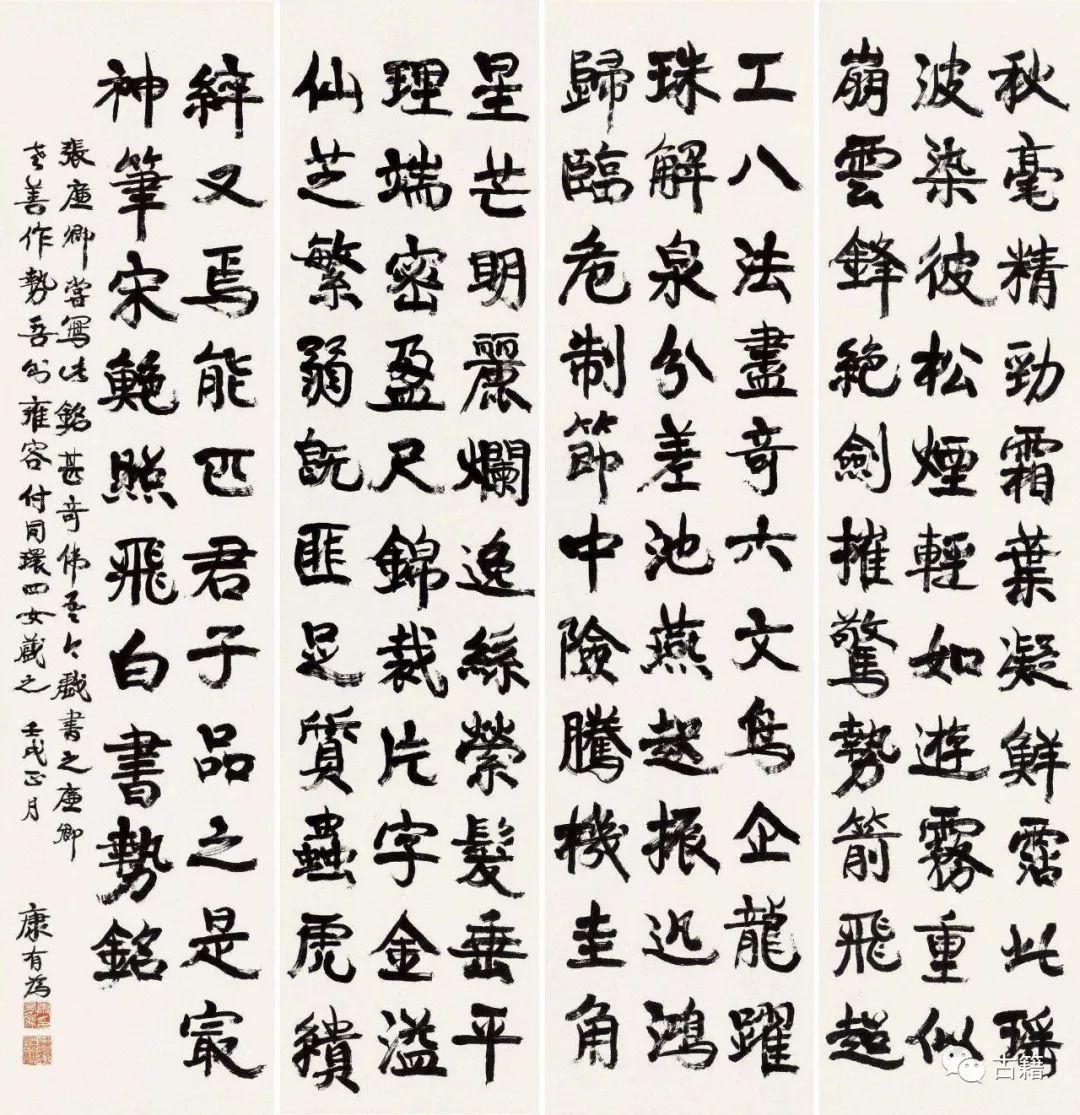 秋毫精勁霜葉凝鮮霑此瑶
波染彼松煙輕如遊霧重似
崩雲鋒絶劍摧驚勢箭飛超
工八法盡奇六文鳥企龍躍
珠解泉分差池燕起振迅鴻
歸臨危制節中險騰機圭角
星芒明麗爛逸絲縈髮垂平
理端密盈尺錦裁片字金溢
仙芝繁弱既匪足質蟲虎繢
綷又焉能匹君子品之是冣
神筆宋鮑照飛白書勢銘
張廉卿嘗寫此銘甚奇偉吾今戲書之廉卿
老善作勢吾則雍容付同環四女藏之 壬戌正月
康有為
古籍